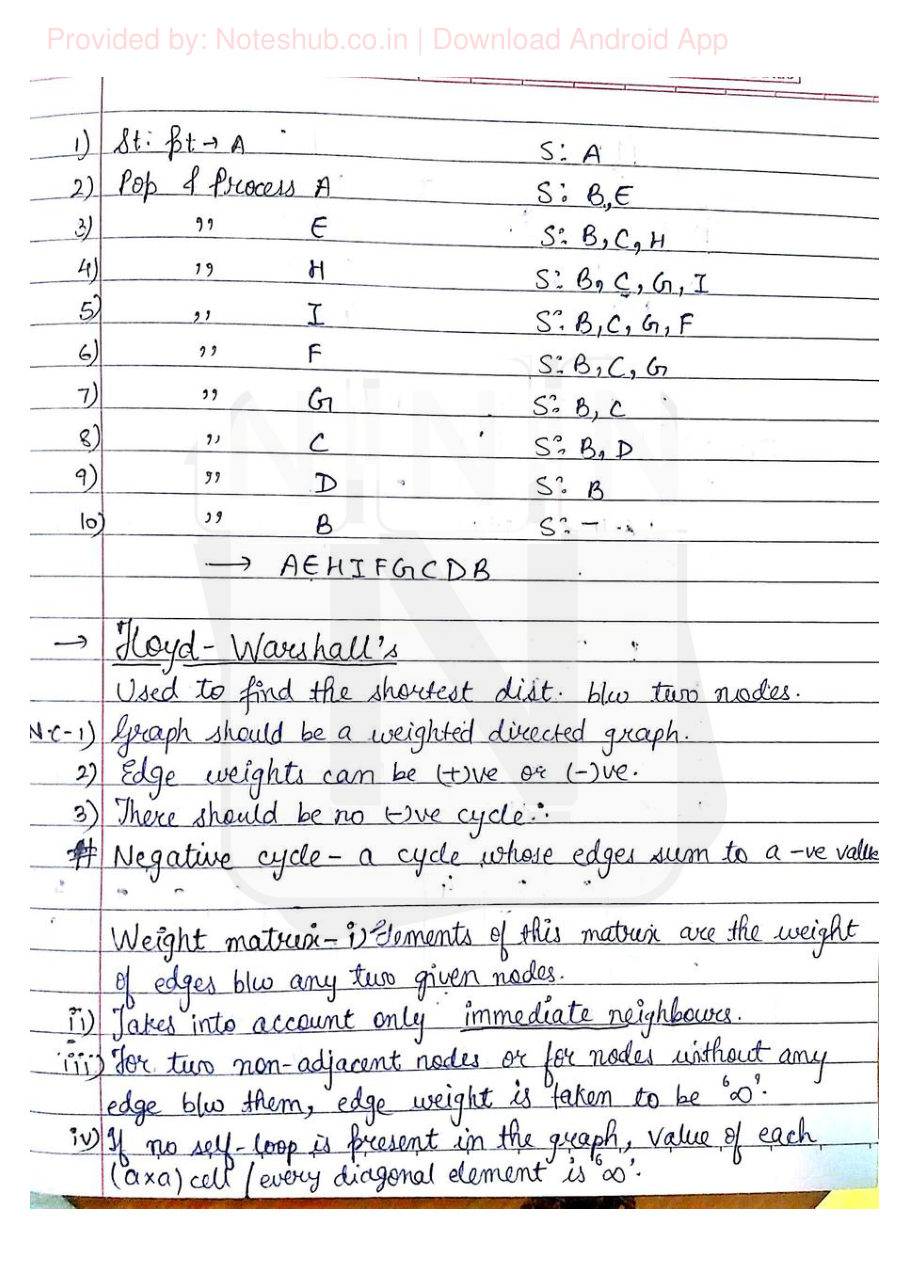 Provided by: Noteshub.co.in | Download Android App
1) St. pt → A S: A
2) Pop & Process A S: B, E
3) " E S: B, C, H
4) " H S: B, C, G, I
5) " I S: B, C, G, F
6) " F S: B, C, G
7) " G S: B, C
8) " C S: B, D
9) " D S: B
10) " B S: -
→ AEHIFGCDB
→ Floyd-Warshall's
Used to find the shortest dist. b/w two nodes.
N.C-1) Graph should be a weighted directed graph.
2) Edge weights can be (+)ve or (-)ve.
3) There should be no (-)ve cycle.
# Negative cycle - a cycle whose edges sum to a -ve value
Weight matrix - i) Elements of this matrix are the weight
of edges b/w any two given nodes.
ii) Takes into account only immediate neighbours.
iii) For two non-adjacent nodes or for nodes without any
edge b/w them, edge weight is taken to be '∞'.
iv) If no self-loop is present in the graph, value of each
(axa) cell / every diagonal element is '∞'.